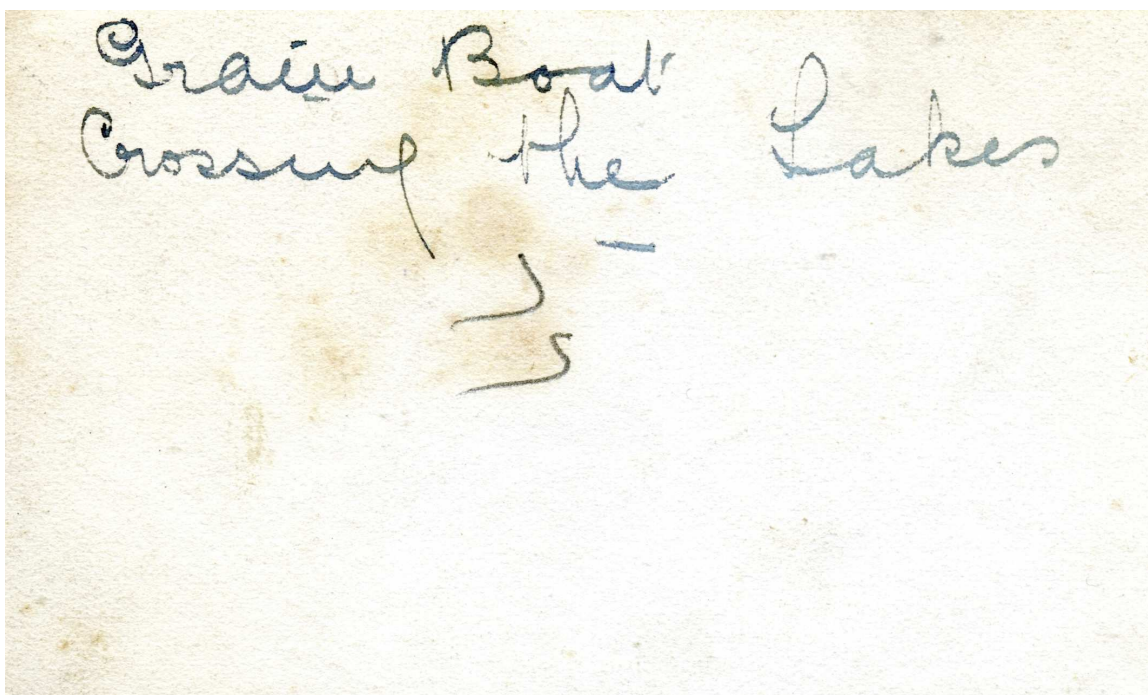 Grain Boat
Crossing the Lakes